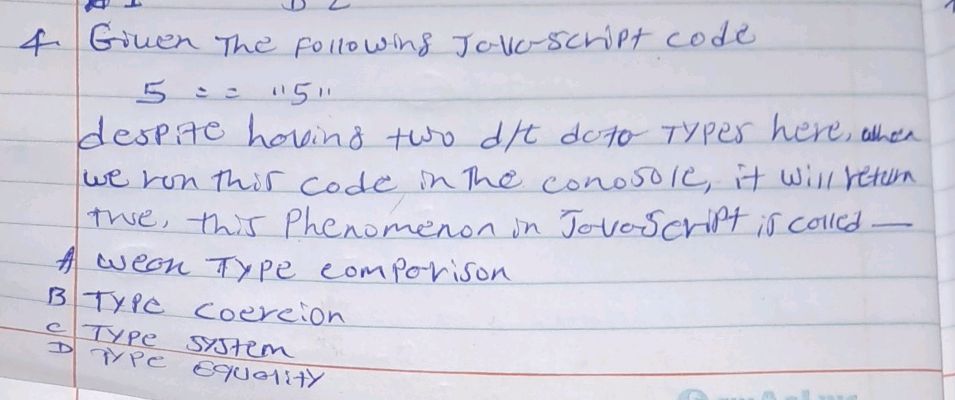 4 Given The Following JavaScript code
5 == "5"
despite having two d/t data Types here, when
we run this code in the conosole, it will return
true, this Phenomenon in JavaScript is called —
A wean Type comparison
B Type coercion
C Type system
D Type Equality